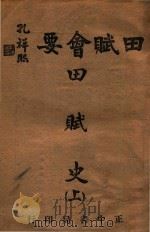 田賦會要
田賦史(上)
孔祥熙
正中書局印行